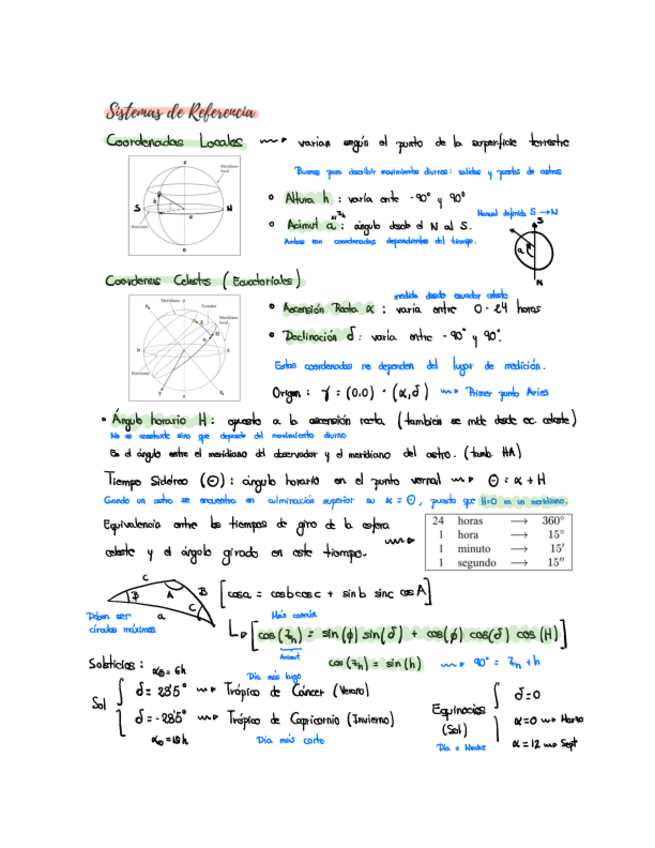 Sistemas de Referencia
Coordenadas Locales ⟿ varian según el punto de la superficie terrestre
Buenas para describir movimientos diurnos: salidas y puestas de astros
• Altura h : varía entre -90° y 90°
• Acimut a : ángulo desde el N al S.
Manual definido S → N
Ambas son coordenadas dependientes del tiempo.
Meridiano local
S
N
h
a
Horizonte
S
a
N
Coordenas Celestes ( Ecuatoriales )
medida desde ecuador celeste
• Ascensión Recta α : varía entre 0 - 24 horas
• Declinación δ : varía entre - 90° y 90°.
Estas coordenadas no dependen del lugar de medición.
Origen : γ = (0,0) - (α,δ) ⟿ Primer punto Aries
Meridiano
Ecuador
Meridiano local
Horizonte
• Ángulo horario H : opuesto a la ascensión recta. (también se mide desde ec. celeste)
No es constante sino que depende del movimiento diurno
Es el ángulo entre el meridiano del observador y el meridiano del astro. (tamb. HA)
Tiempo Sidéreo (Θ) : ángulo horario en el punto vernal ⟿ Θ = α + H
Cuando un astro se encuentra en culminación superior su α = Θ, puesto que H=0 en su meridiano.
Equivalencia entre los tiempos de giro de la esfera
celeste y el ángulo girado en este tiempo. ⟿
24 horas → 360°
1 hora → 15°
1 minuto → 15′
1 segundo → 15″
C
B
A
B
C
a
Deben ser
círculos máximos
[cosa = cosb cosc + sinb sinc cosA]
Más común
[cos(Zh) = sin(ϕ) sin(δ) + cos(ϕ) cos(δ) cos(H)]
Acimut
cos(Zh) = sin(h) ⟿ 90° = Zh + h
Solsticios :
α⊙ = 6h
Día más largo
Sol
δ = 23'5° ⟿ Trópico de Cáncer (Verano)
δ = -23'5° ⟿ Trópico de Capricornio (Invierno)
α⊙ = 18h
Día más corto
Equinocios
(Sol)
Día = Noche
δ = 0
α = 0 ⟿ Marzo
α = 12 ⟿ Sept